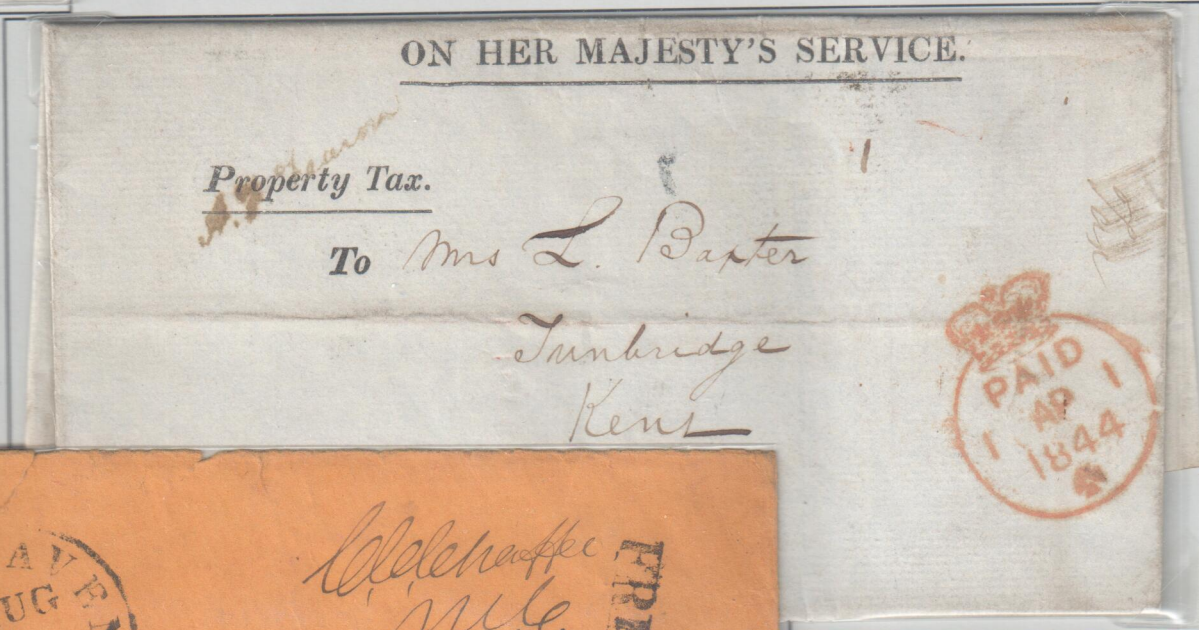 ON HER MAJESTY'S SERVICE.
Property Tax.
To Mrs L. Baxter
Tunbridge
Kent
PAID
1 AP 1
1844
AVEN
UG
M.C.
FRE